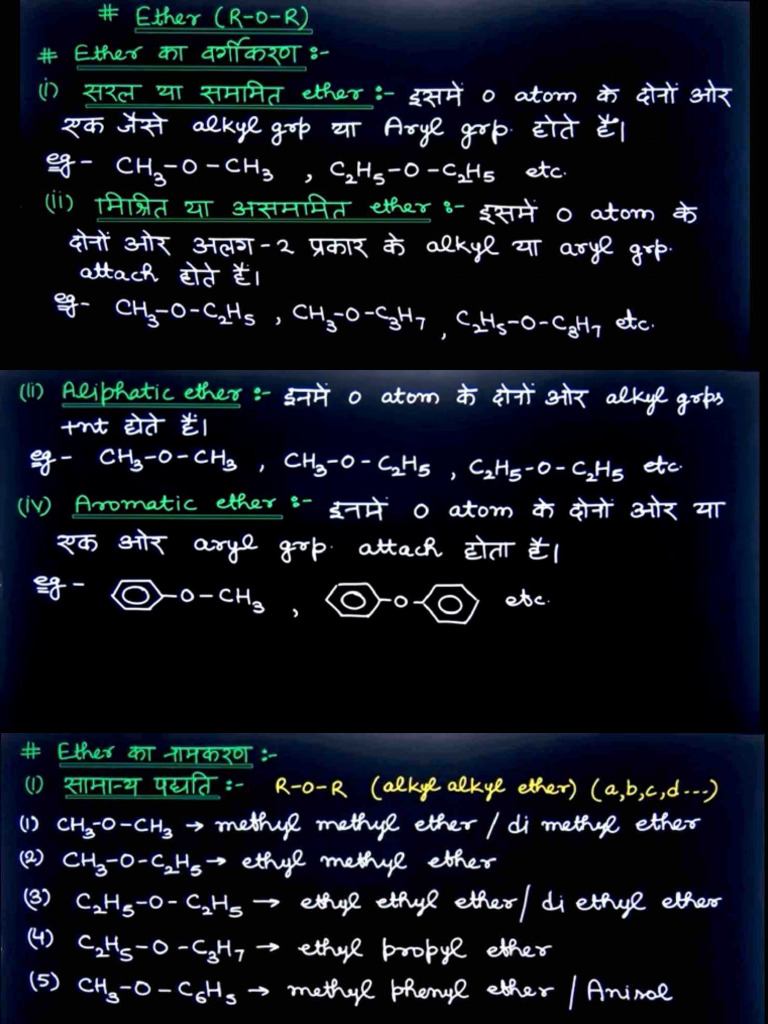 # Ether (R-O-R)
# Ether का वर्गीकरण :-
(i) सरल या सममित ether :- इसमें O atom के दोनों ओर
एक जैसे alkyl grp या Aryl grp. होते हैं।
eg - CH₃-O-CH₃ , C₂H₅-O-C₂H₅ etc.
(ii) मिश्रित या असममित ether :- इसमें O atom के
दोनों ओर अलग-2 प्रकार के alkyl या aryl grp.
attach होते हैं।
eg - CH₃-O-C₂H₅ , CH₃-O-C₃H₇ , C₂H₅-O-C₃H₇ etc.
(ii) Aliphatic ether :- इनमें O atom के दोनों ओर alkyl grps
+nt होते हैं।
eg - CH₃-O-CH₃ , CH₃-O-C₂H₅ , C₂H₅-O-C₂H₅ etc.
(iv) Aromatic ether :- इनमें O atom के दोनों ओर या
एक ओर aryl grp. attach होता है।
eg - -O-CH₃ , -O- etc.
# Ether का नामकरण :-
(1) सामान्य पद्धति :- R-O-R (alkyl alkyl ether) (a,b,c,d---)
(1) CH₃-O-CH₃ → methyl methyl ether / di methyl ether
(2) CH₃-O-C₂H₅ → ethyl methyl ether
(3) C₂H₅-O-C₂H₅ → ethyl ethyl ether / di ethyl ether
(4) C₂H₅-O-C₃H₇ → ethyl propyl ether
(5) CH₃-O-C₆H₅ → methyl phenyl ether / Anisol